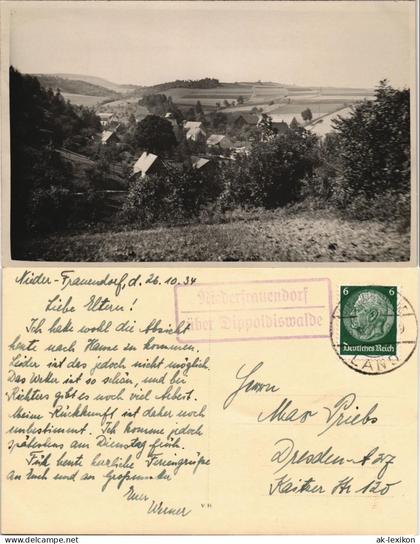 Nieder-Frauendorf, d. 26.10.34
Liebe Eltern!
Ich habe wohl die Absicht
heute nach Hause zu kommen.
Leider ist das jedoch nicht möglich.
Das Wetter ist so schön, und bei
Richters gibt es noch viel Arbeit.
Meine Rückkunft ist daher noch
unbestimmt. Ich komme jedoch
spätestens am Dienstag früh.
Für heute herzliche Feriengrüße
an Euch und an Großmutter
Euer
Werner
Niederfrauendorf
über Dippoldiswalde
6 6
Deutsches Reich
LAND
Herrn
Max Priebs
Dresden-A 27
Kaitzer Str 120
V H
ak-lexikon
© ak-lexikon.de